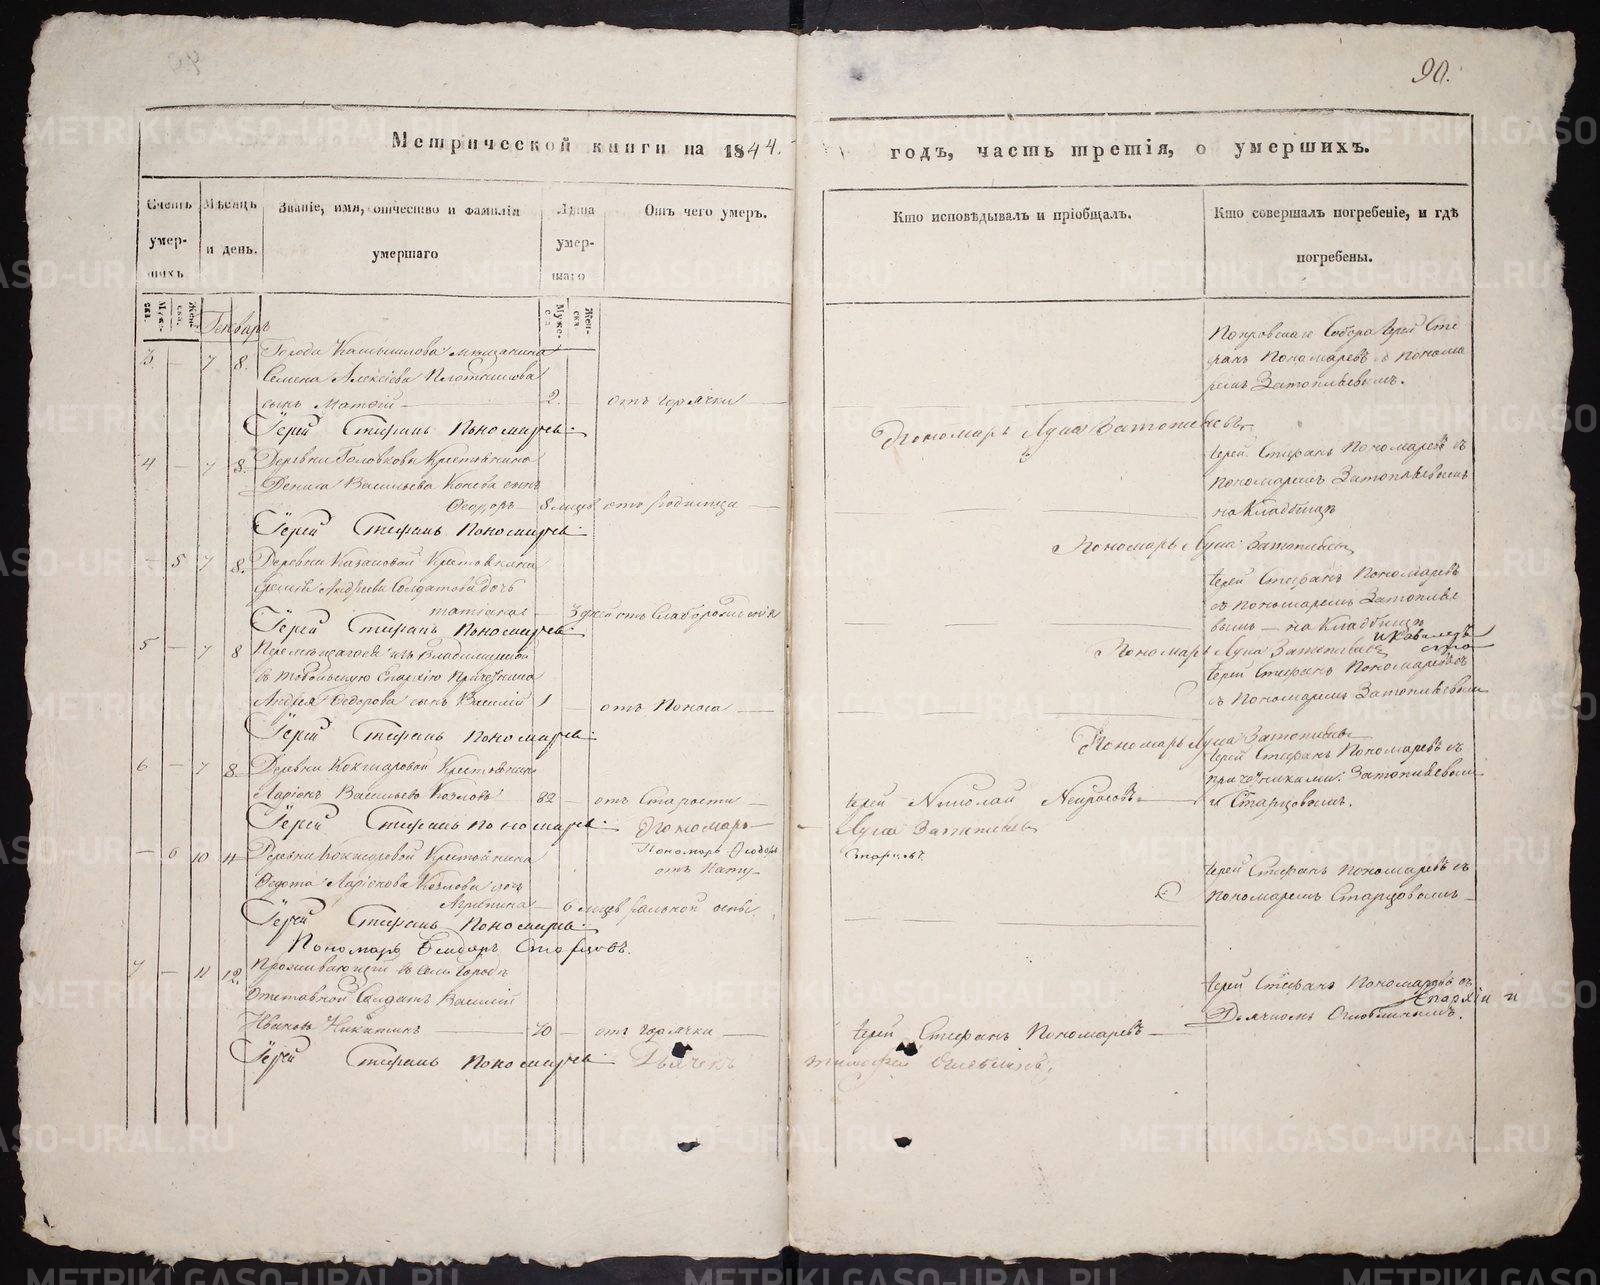 90.
Метрической книги на 1844.
годъ, часть третія, о умершихъ.
Счетъ умер- шихъ
Мѣсяцъ и день.
Званіе, имя, отчество и фамилія умершаго
Лѣта умер- шаго
Отъ чего умеръ.
Кто исповѣдывалъ и пріобщалъ.
Кто совершалъ погребеніе, и гдѣ погребены.
Муже- ска.
Жен- ска.
Генварь
Муже-
Жен- ска.
3 — 7 8. Города Камышлова мещанина
Семена Алексіева Плотникова
сынъ Матѳій — 2. отъ горячки —
Покровскаго Собора Іерей Сте
фанъ Пономаревъ съ понома
ремъ Затопляевымъ.
Іерей Стефанъ Пономаревъ.
Пономарь Лука Затопляевъ
4 — 7 8. Деревни Головковы Крестьянина
Дениса Васильева Конева сынъ
Ѳеодоръ — 8 мѣсяц отъ родимца —
Іерей Стефанъ Пономаревъ съ
пономаремъ Затопляевымъ
на кладбищѣ
Іерей Стефанъ Пономаревъ.
Пономарь Лука Затопляевъ
— 5 7 8. Деревни Казаковой Крестьянина
Андреева Солдатова дочь
Татіана — 3 дней отъ слаборожденія
Іерей Стефанъ Пономаревъ
съ пономаремъ Затопляе
вымъ — на кладбищѣ
Іерей Стефанъ Пономаревъ.
Пономарь Лука Затопляевъ
5 — 7 8 изъ Владимирской
въ Тобольскую Епархію Причетника
Андрея Ѳедорова сынъ Василій 1 — отъ поноса —
Іерей Стефанъ Пономаревъ
съ пономаремъ Затопляевымъ
Іерей Стефанъ Пономаревъ.
Пономарь Лука Затопляевъ
6 — 7 8 Деревни Кокшаровой Крестьянинъ
Ларіонъ Васильевъ Козловъ 82 — отъ старости —
Іерей Николай
Іерей Стефанъ Пономаревъ съ
причетниками: Затопляевымъ
и Старцовымъ.
Іерей Стефанъ Пономаревъ. Пономарь —
Лука Затопляевъ
Пономарь Ѳеодоръ
Старцовъ
— 6 10 11 Деревни Кокшаровой Крестьянина
Ѳедота Ларіонова Козлова дочь
Агрипина — 6 мѣсяцев отъ нату-
ральной оспы
Іерей Стефанъ Пономаревъ съ
пономаремъ Старцовымъ —
Іерей Стефанъ Пономаревъ.
Пономарь Ѳеодоръ Старцовъ.
7 — 11 12. Проживающей въ
Отставной Солдатъ Василій
Ивановъ Никитинъ — 70 — отъ горячки —
Іерей Стефанъ Пономаревъ —
Іерей Стефанъ Пономаревъ съ
Дьячкомъ
Іерей Стефанъ Пономаревъ. Дьячекъ
Тимофей